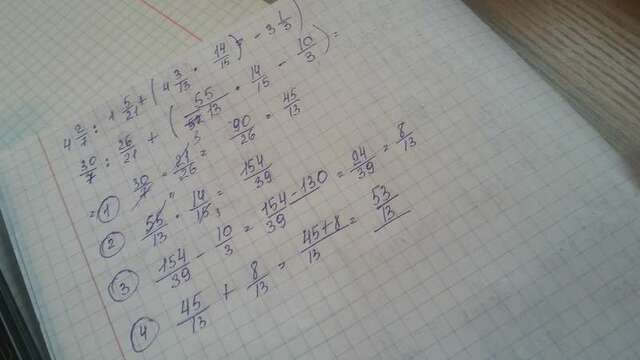 4 2/7 : 1 5/21 + (4 3/13 · 14/15 - 3 1/3)
30/7 : 26/21 + (55/13 · 14/15 - 10/3) =
= 1) 30/7 · 21/26 = 90/26 = 45/13
2) 55/13 · 14/15 = 154/39
3) 154/39 - 10/3 = 154-130/39 = 24/39 = 8/13
4) 45/13 + 8/13 = 45+8/13 = 53/13